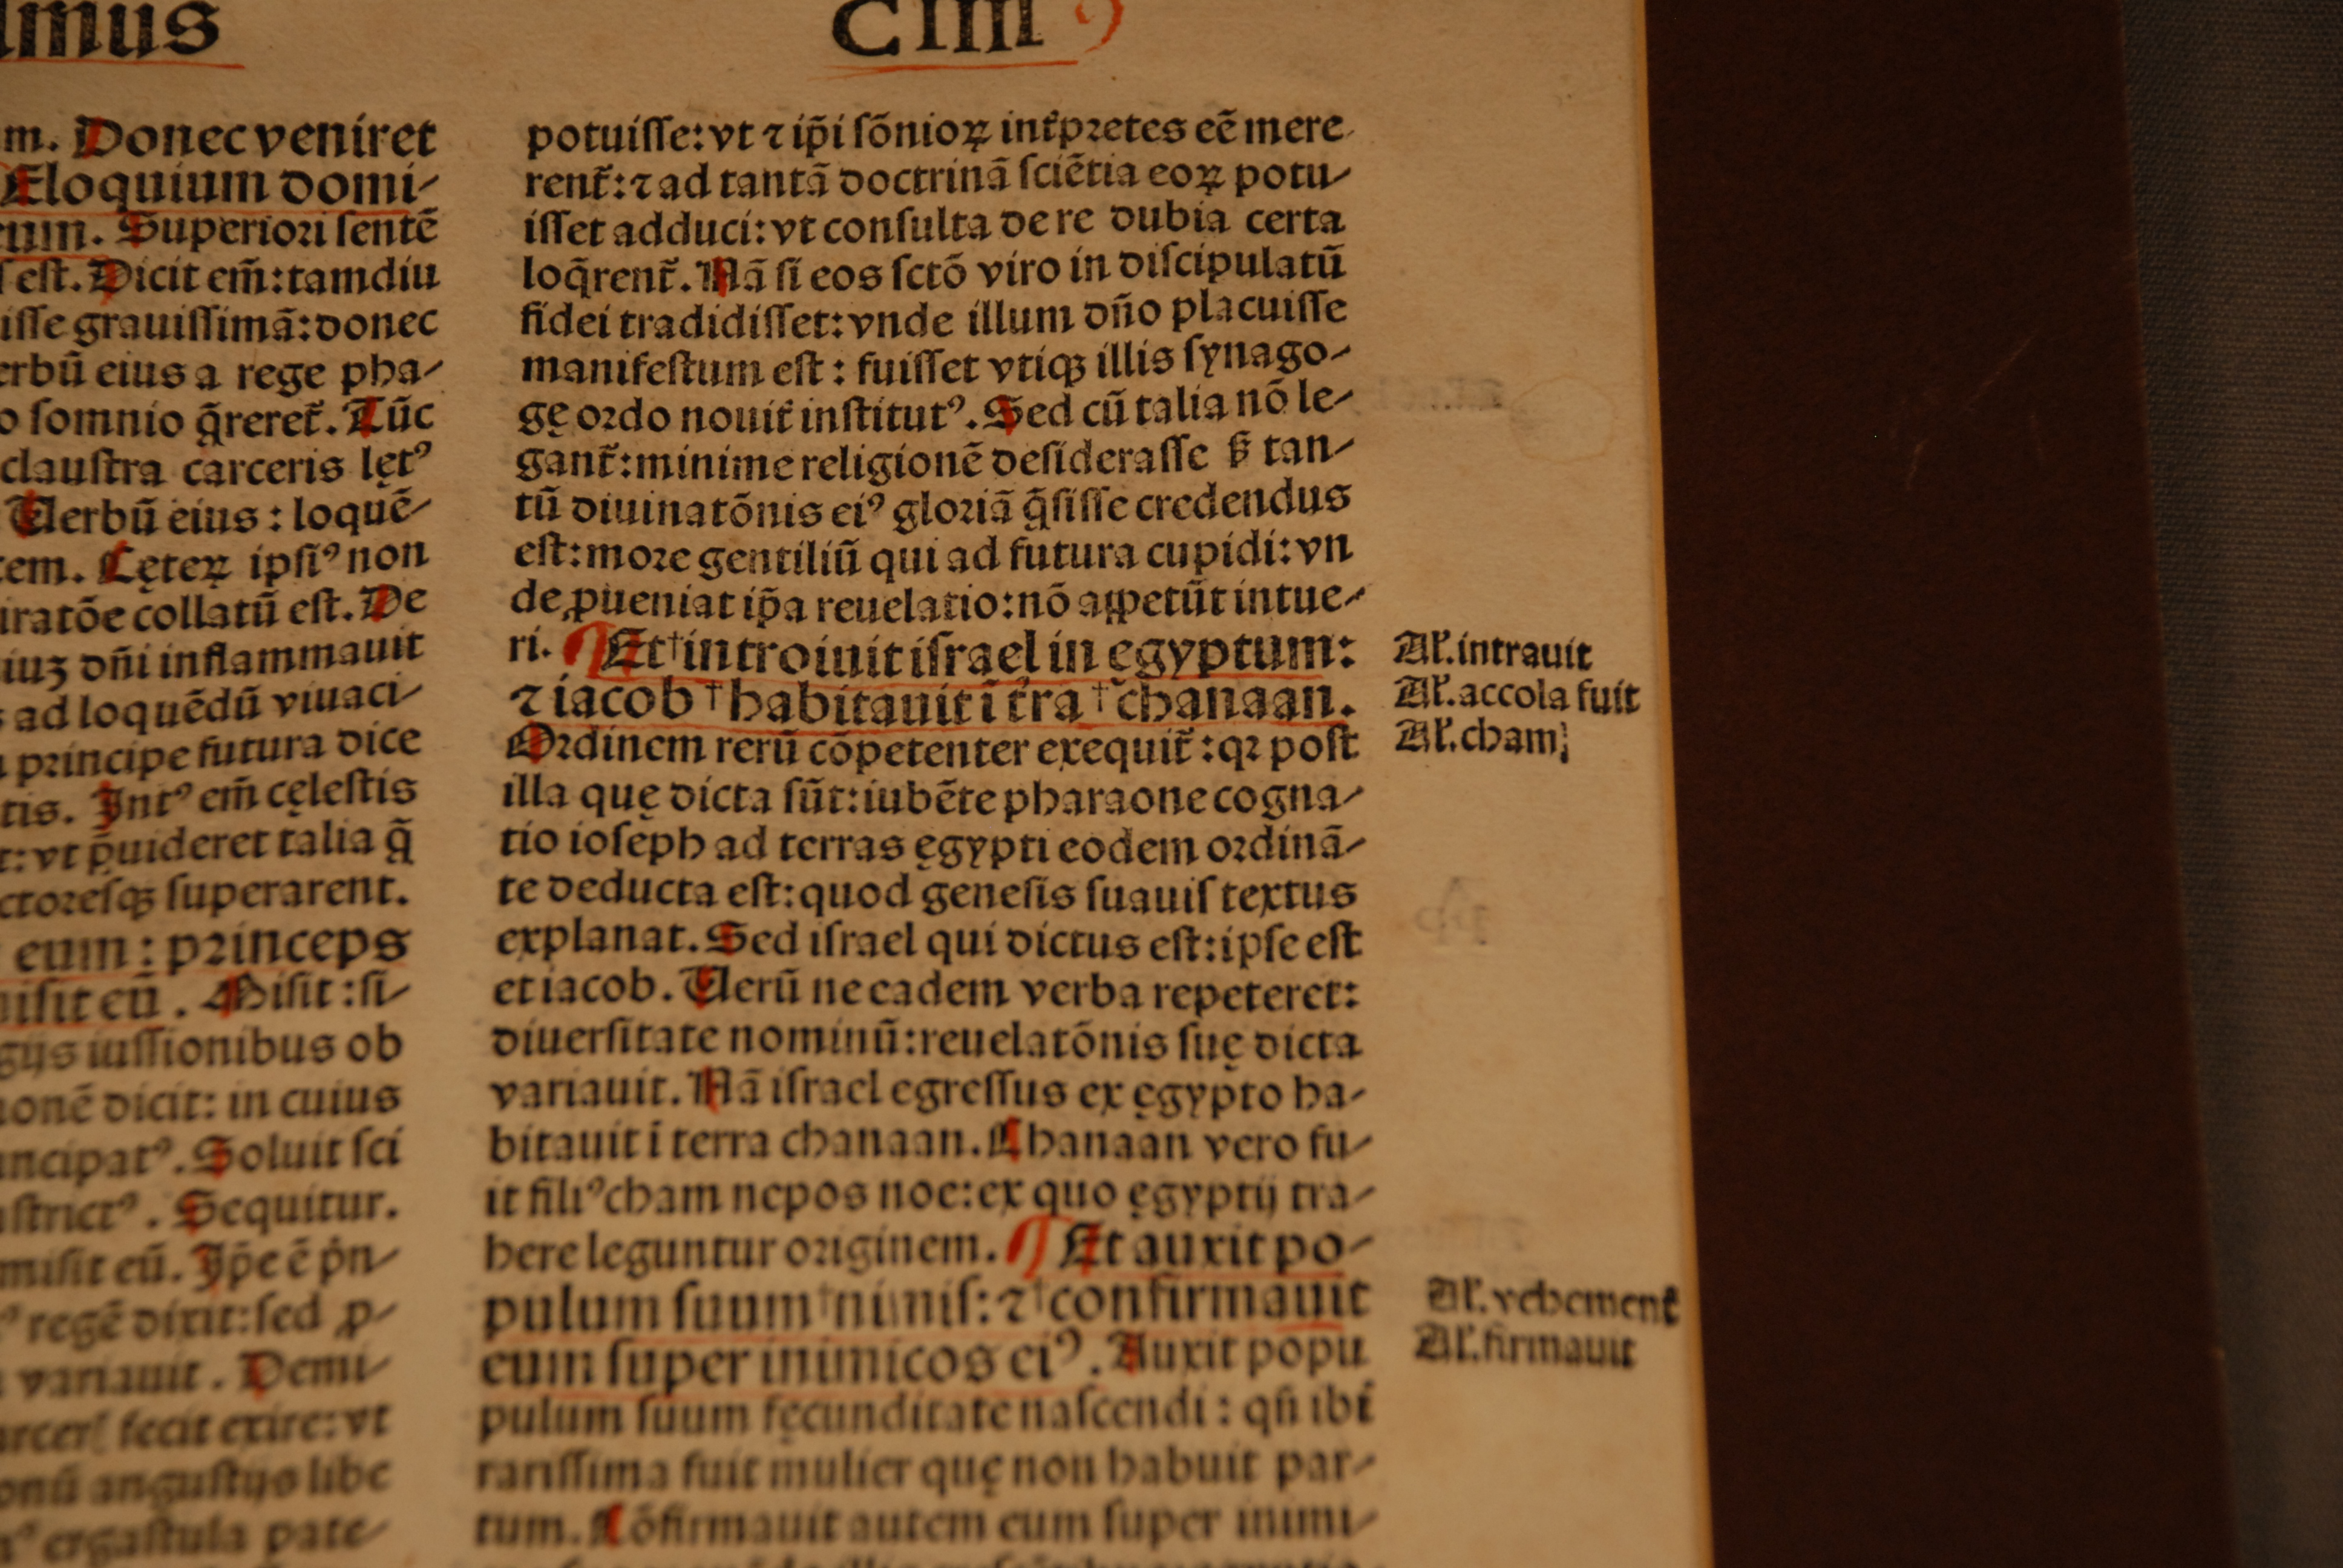 imus
CIIII
m. Donec veniret
Eloquium domi-
cum. Superiori sentē
est. Dicit em̄: tamdiu
isse grauissimā: donec
erbū eius a rege pha-
o somnio q̄reret᷑. Tūc
claustra carceris lęt⁹
Uerbū eius: loquē-
tem. Cęteꝝ ipsi⁹ non
iratōe collatū est. De
iuʒ dn̄i inflammauit
ad loquēdū viuaci-
principe futura dice
tis. Int⁹ em̄ cęlestis
t: vt p̄uideret talia q̄
ctoresqꝫ superarent.
eum: princeps
misit eū. Misit: si-
gijs iussionibus ob
onē dicit: in cuius
incipat⁹. Soluit sci
strict⁹. Sequitur.
misit eū. Ip̄e ē pͥn-
⁹ regē dixit: sed ꝓ-
variauit. Demi-
fecit exire: vt
onū angustijs libe
⁹ ergastula pate-
potuisse: vt ⁊ ip̄i sōnioꝝ int᷑pretes eē mere
rent᷑: ⁊ ad tantā doctrinā sciētia eoꝝ potu-
isset adduci: vt consulta de re dubia certa
loq̄rent᷑. Nā si eos sctō viro in discipulatū
fidei tradidisset: vnde illum dn̄o placuisse
manifestum est: fuisset vtiqꝫ illis synago-
gę ordo nouit᷑ institut⁹. Sed cū talia nō le-
gant᷑: minime religionē desiderasse ꝟ tan-
tū diuinatōnis ei⁹ gloriā q̄sisse credendus
est: more gentiliū qui ad futura cupidi: vn
de ꝓueniat ip̄a reuelatio: nō appetūt intue-
ri. ¶ Et †introiuit israel in ęgyptum:
⁊ iacob †habitauit ī t᷑ra †chanaan.
Ordinem rerū cōpetenter exequit᷑: qꝛ post
illa quę dicta sūt: iubēte pharaone cogna-
tio ioseph ad terras ęgypti eodem ordinā-
te deducta est: quod genesis suauis textus
explanat. Sed israel qui dictus est: ipse est
et iacob. Uerū ne eadem verba repeteret:
diuersitate nominū: reuelatōnis suę dicta
variauit. Nā israel egressus ex ęgypto ha-
bitauit ī terra chanaan. Chanaan vero fu-
it fili⁹ cham nepos noe: ex quo ęgyptij tra-
here leguntur originem. ¶ Et auxit po-
pulum suum †nimis: ⁊ †confirmauit
eum super inimicos ei⁹. Auxit popu
pulum suum fęcunditate nascendi: qn̄ ibi
rarissima fuit mulier quę non habuit par-
tum. Cōfirmauit autem eum super inimi-
Al'. intrauit
Al'. accola fuit
Al'. cham
Al'. vehement᷑
Al'. firmauit